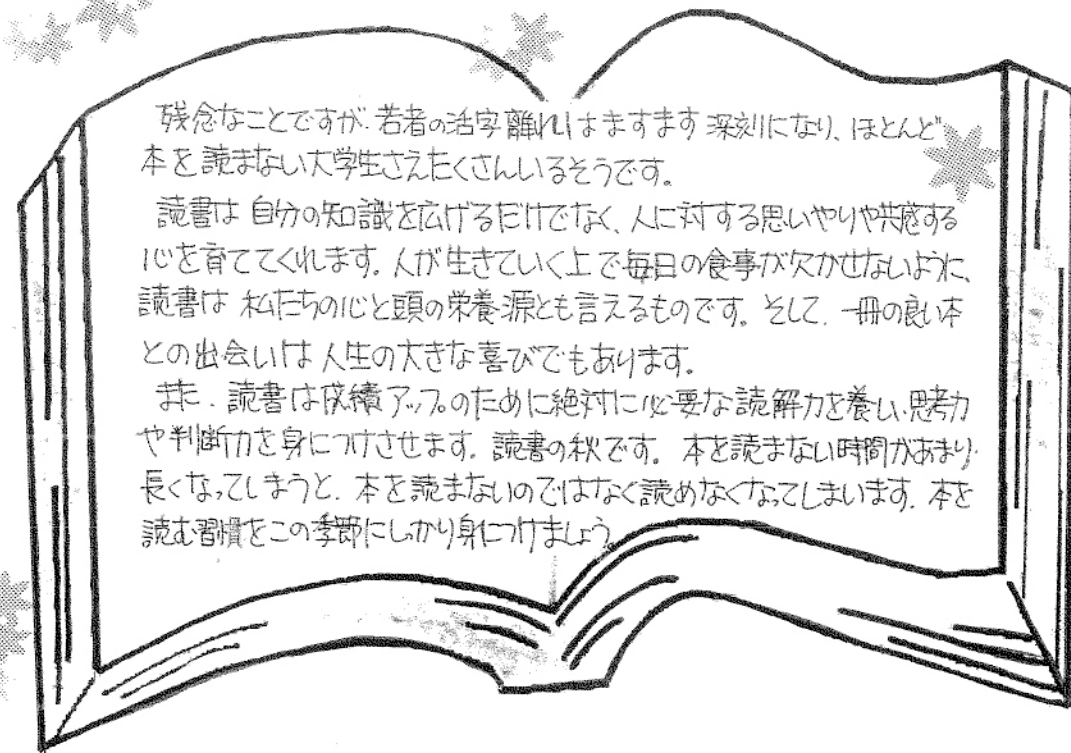 残念なことですが、若者の活字離れはますます深刻になり、ほとんど
本を読まない大学生さえたくさんいるそうです。
読書は自分の知識を広げるだけでなく、人に対する思いやりや共感する
心を育ててくれます。人が生きていく上で毎日の食事が欠かせないように、
読書は私たちの心と頭の栄養源とも言えるものです。そして、一冊の良い本
との出会いは人生の大きな喜びでもあります。
また、読書は成績アップのために絶対に必要な読解力を養い、思考力
や判断力を身につけさせます。読書の秋です。本を読まない時間があまり
長くなってしまうと、本を読まないのではなく読めなくなってしまいます。本を
読む習慣をこの季節にしっかり身につけましょう。